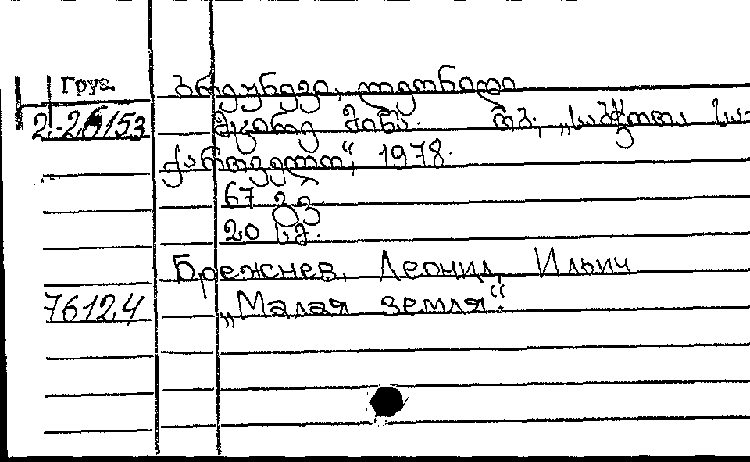 Груз.
ბრეჟნევი, ლეონიდი
2-26153
მცირე მიწა. თბ., „საბჭოთა სა-
ქართველო“, 1978.
67 გვ
20 სმ.
Брежнев, Леонид Ильич
7612.4
„Малая земля“.